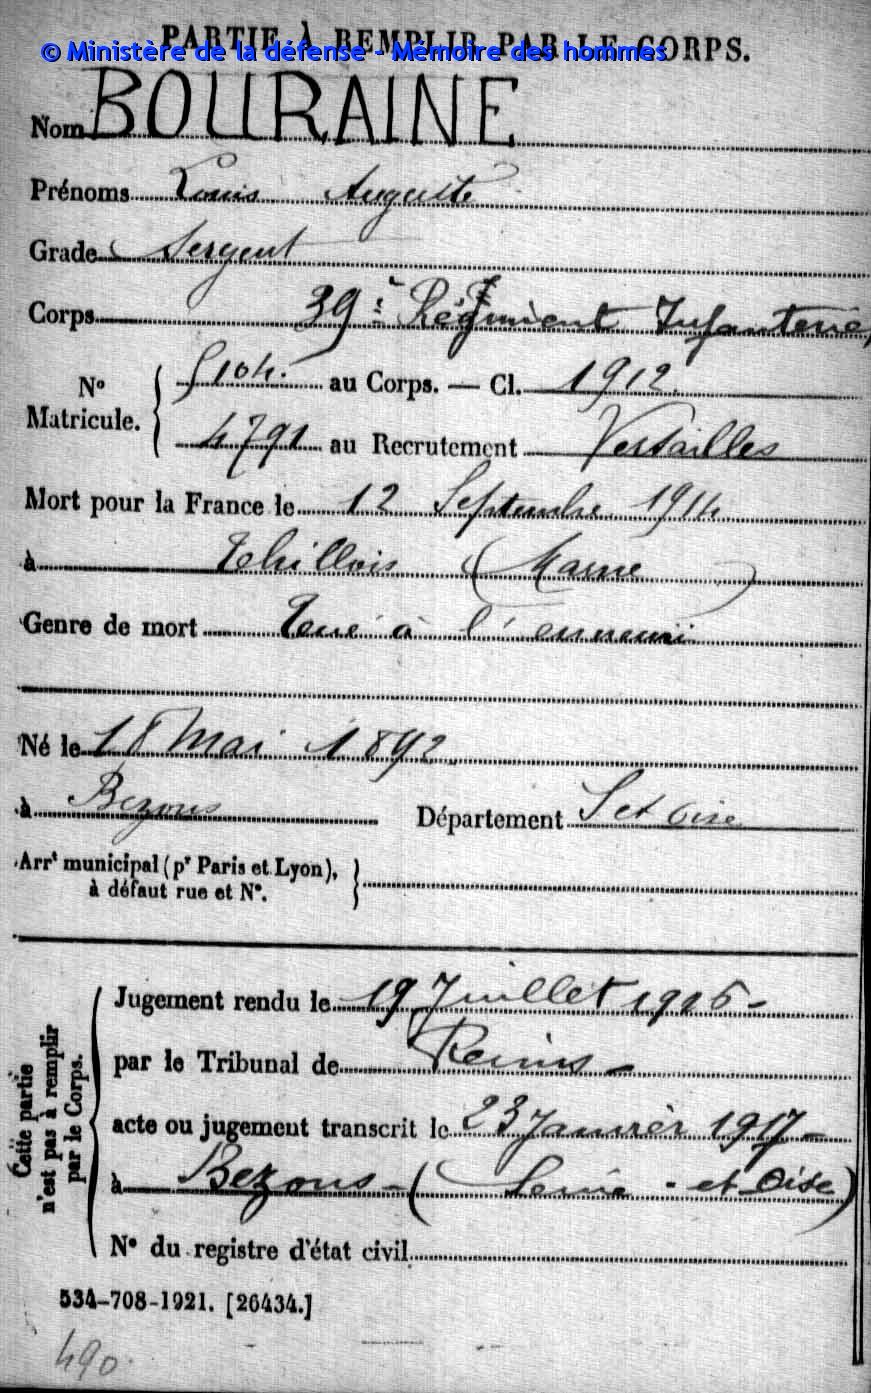 PARTIE À REMPLIR PAR LE CORPS.
© Ministère de la défense - Mémoire des hommes
Nom BOURAINE
Prénoms Louis Auguste
Grade Sergent
Corps 39e Régiment Infanterie
N° Matricule. { 5104. au Corps. — Cl. 1912.
4791 au Recrutement Versailles
Mort pour la France le 12 Septembre 1914
à Thillois (Marne)
Genre de mort Tué à l'ennemi
Né le 18 Mai 1892
à Bezons Département S et Oise
Arrt municipal (pr Paris et Lyon), }
à défaut rue et N°.
Cette partie n'est pas à remplir par le Corps.
Jugement rendu le 19 Juillet 1916 -
par le Tribunal de Reims -
acte ou jugement transcrit le 23 Janvier 1917 -
à Bezons - (Seine - et Oise)
N° du registre d'état civil
534-708-1921. [26434.]
490